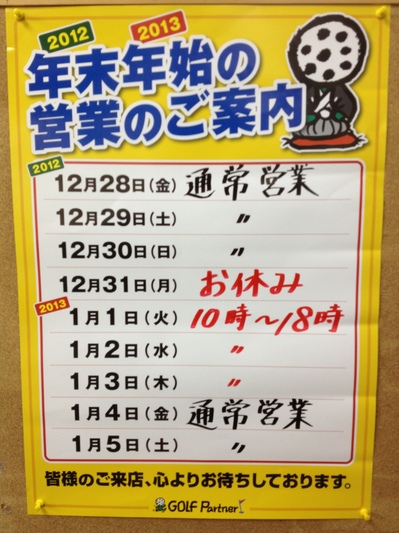 2012 2013
年末年始の
営業のご案内
2012
12月28日(金) 通常営業
12月29日(土) 〃
12月30日(日) 〃
12月31日(月) お休み
2013
1月1日(火) 10時~18時
1月2日(水) 〃
1月3日(木) 〃
1月4日(金) 通常営業
1月5日(土) 〃
皆様のご来店、心よりお待ちしております。
GOLF Partner